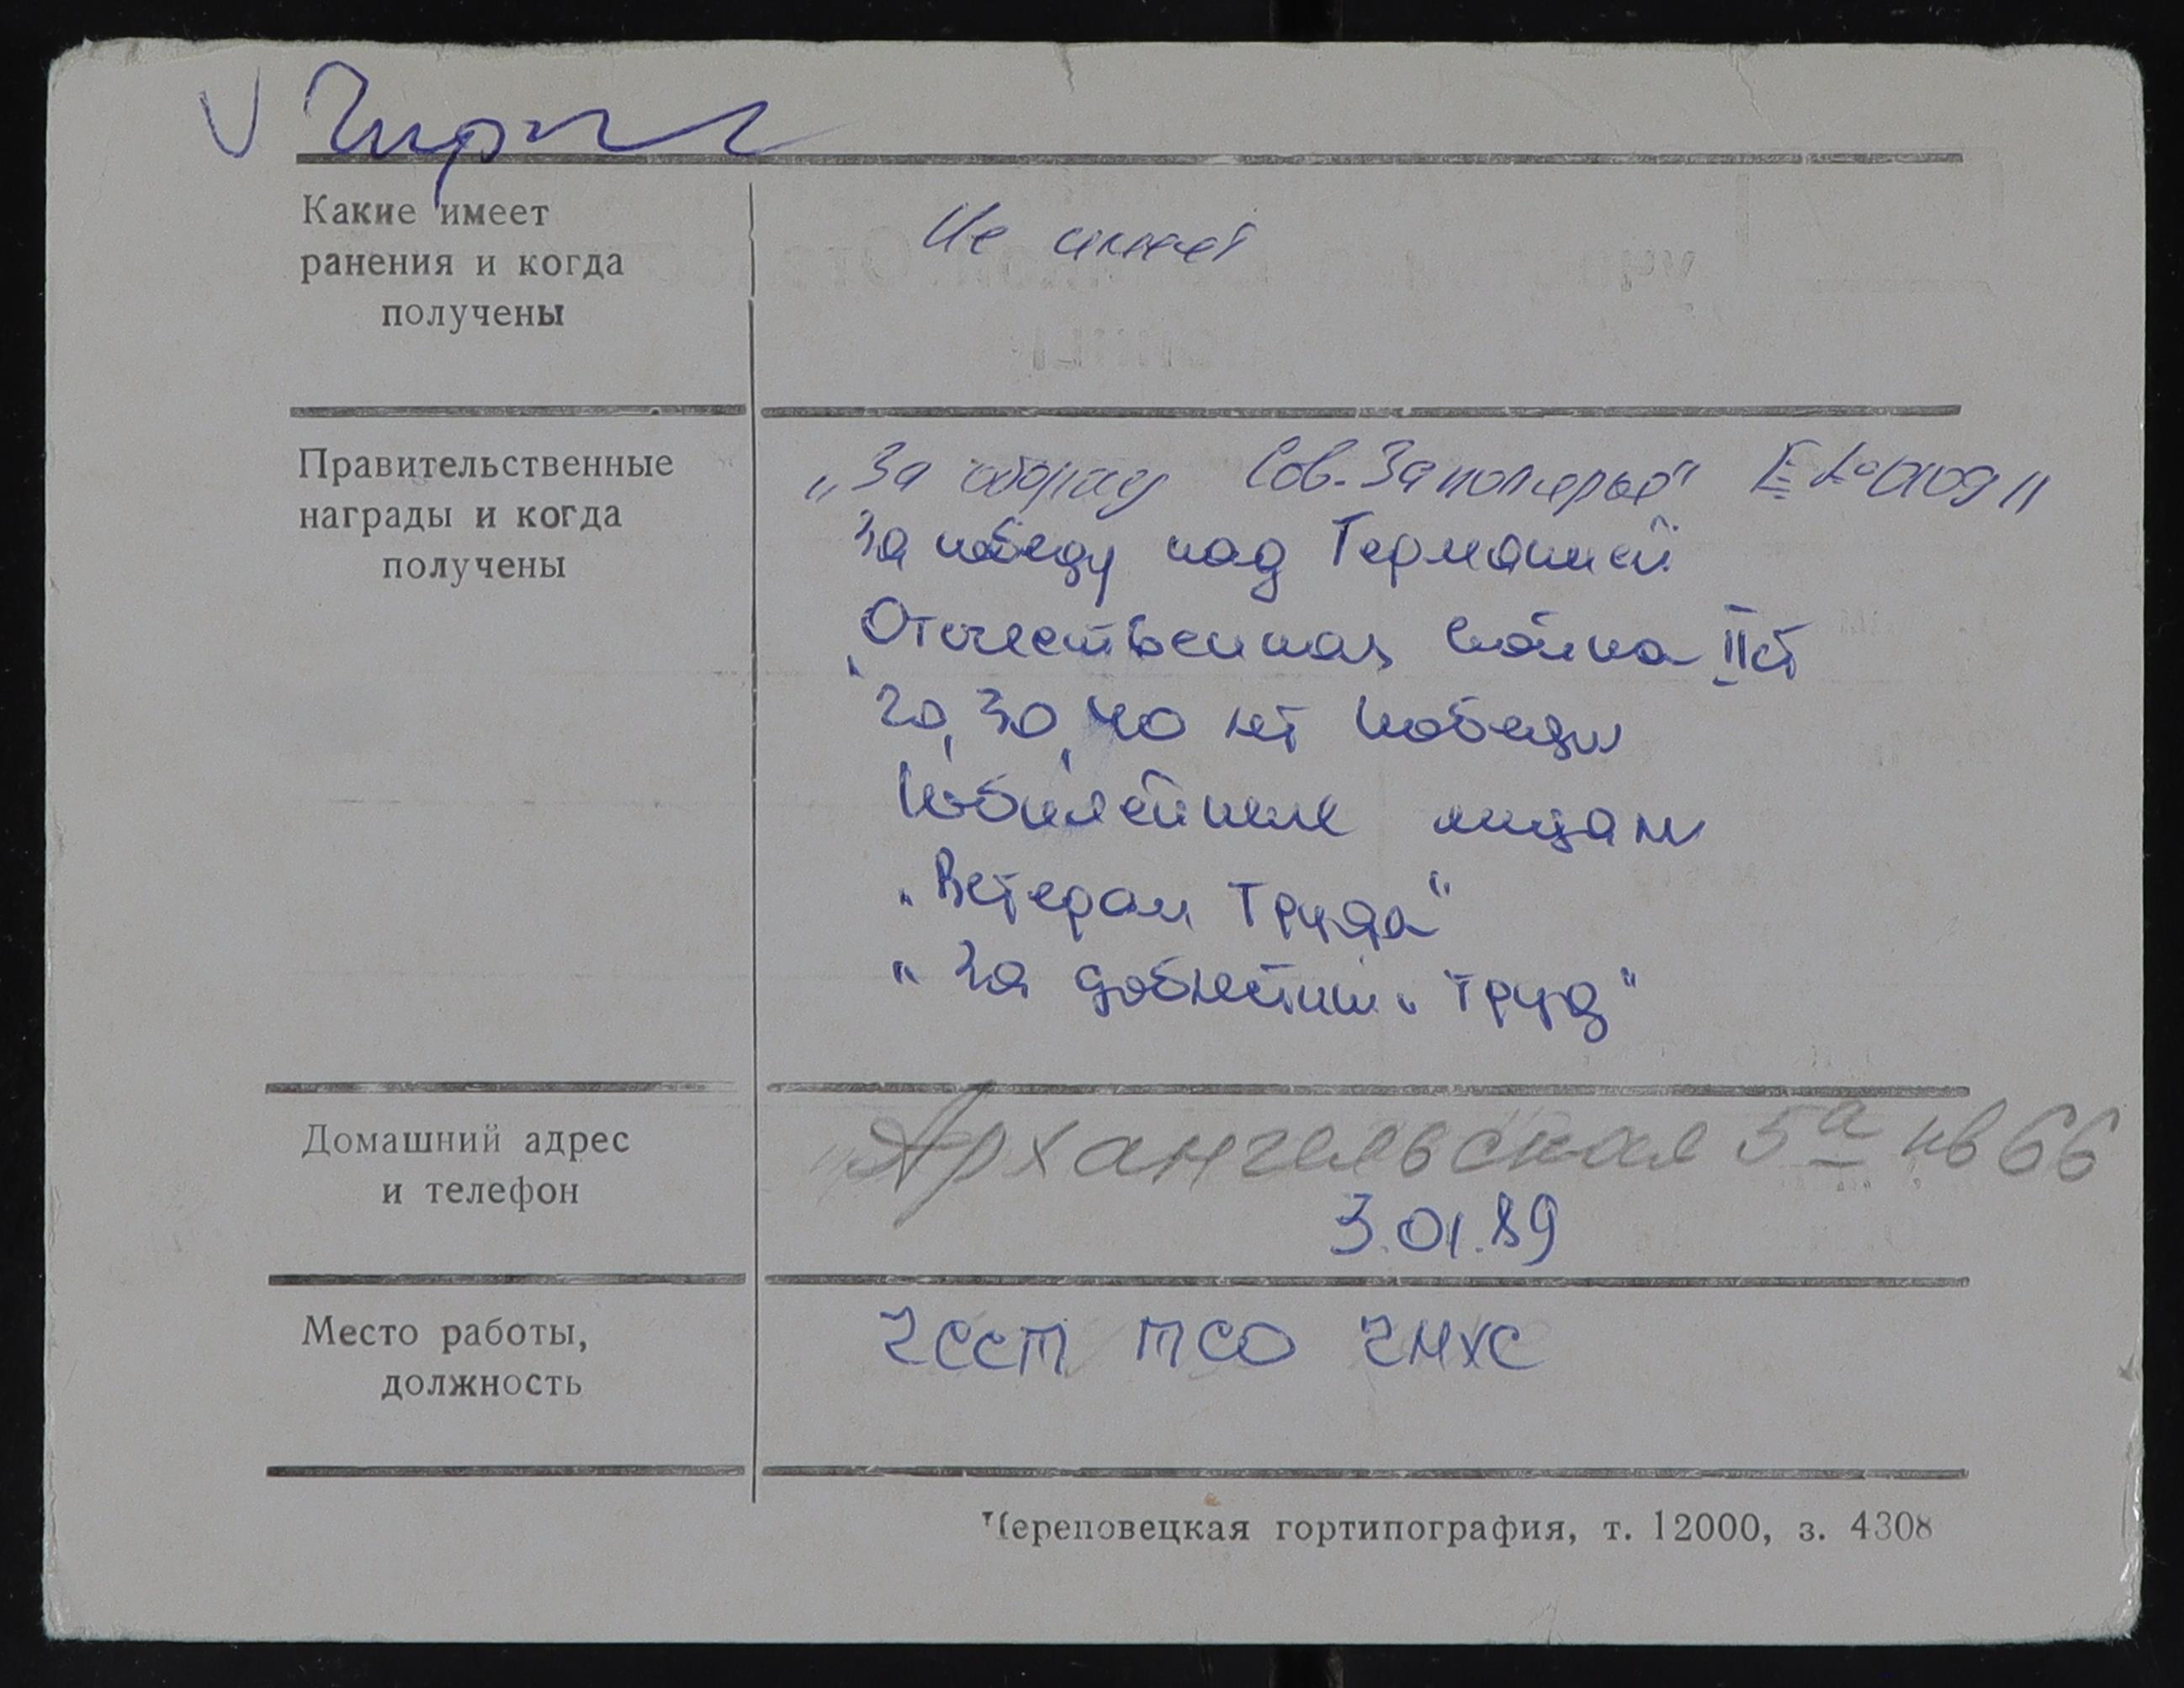 Какие имеет
ранения и когда
получены
Не имеет
Правительственные
награды и когда
получены
„За оборону Сов. Заполярья"
За победу над Германией
Отечественная война II ст
20, 30, 40 лет победы
Юбилейные медали
„Ветеран труда"
„За доблестный труд"
Домашний адрес
и телефон
Архангельская 5а кв 66
3.01.89
Место работы,
должность
ЧССТ ПСО ЧМХС
Череповецкая гортипография, т. 12000, з. 4308